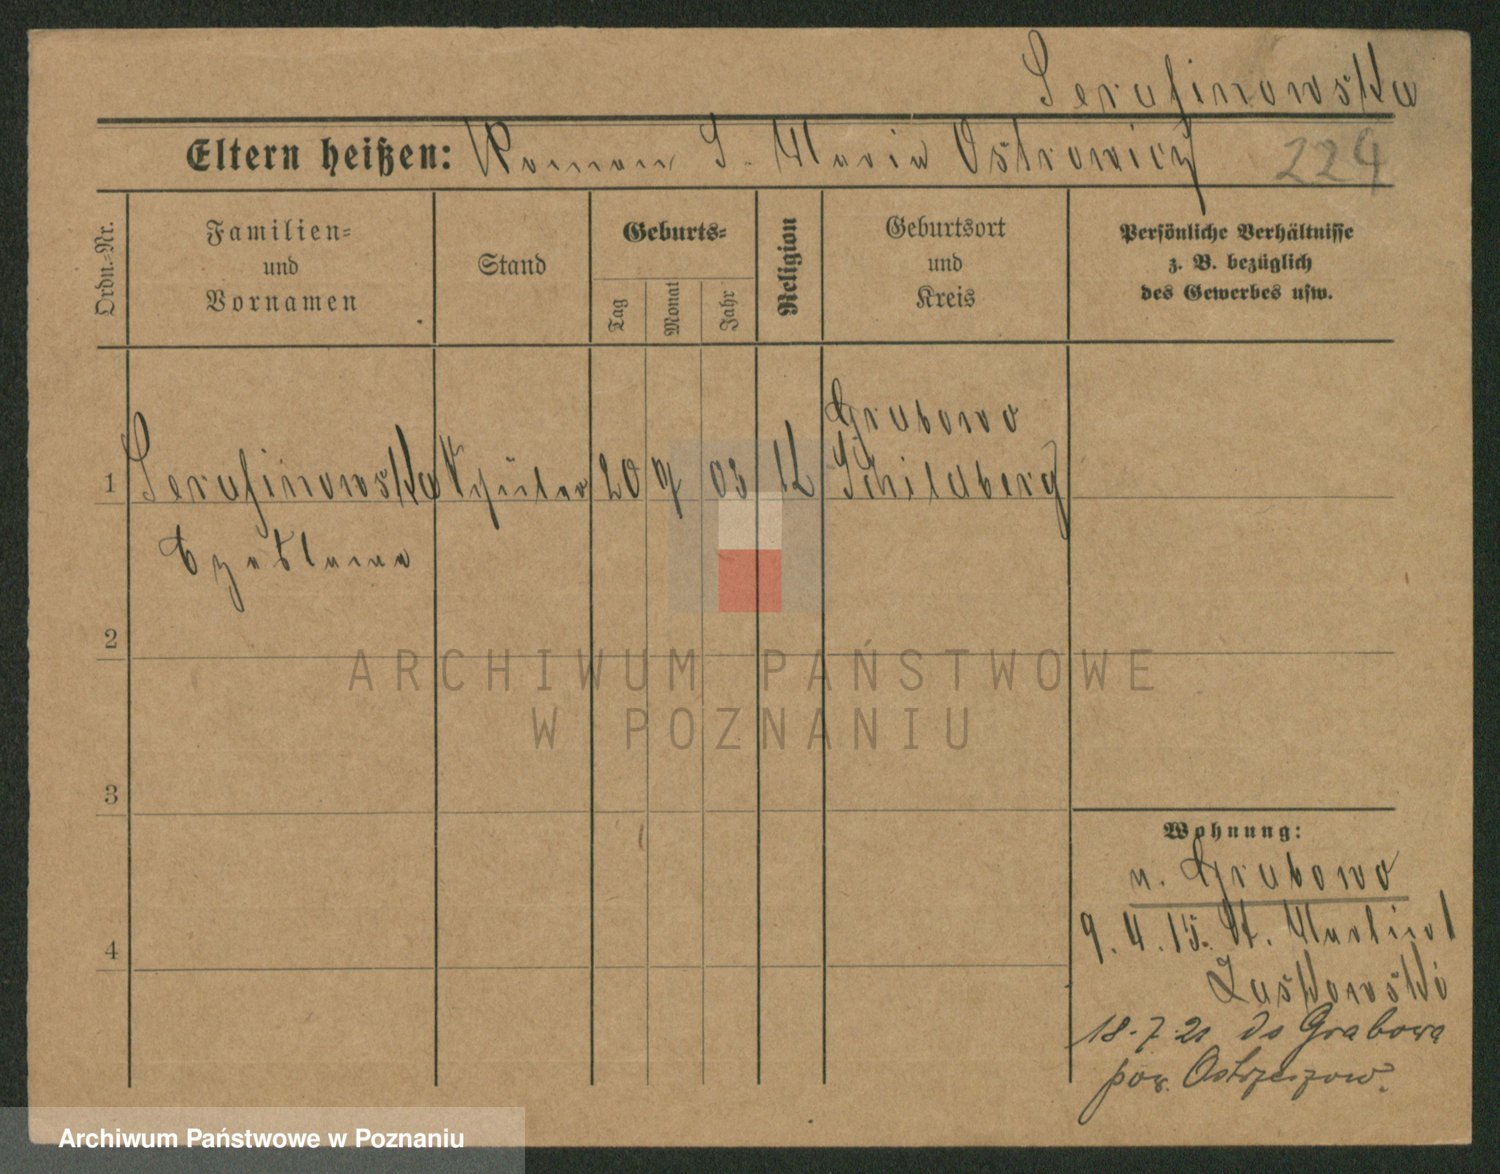 Serafinowska
Eltern heißen: Roman S. Maria Ostrowicz
224
Ordn.=Nr.
Familien=
und
Vornamen
Stand
Geburts=
Tag
Monat
Jahr
Religion
Geburtsort
und
Kreis
Persönliche Verhältnisse
z. B. bezüglich
des Gewerbes usw.
1
Serafinowska
Czeslawa
Schülerin
20
03
k
Grabowo
Schildberg
2
3
4
Wohnung:
n. Grabowo
9. 4. 15. St. Martin 1
Laskowski
18. 7. 21 do Grabowa
pow. Ostrzeszow.
ARCHIWUM PAŃSTWOWE
W POZNANIU
Archiwum Państwowe w Poznaniu